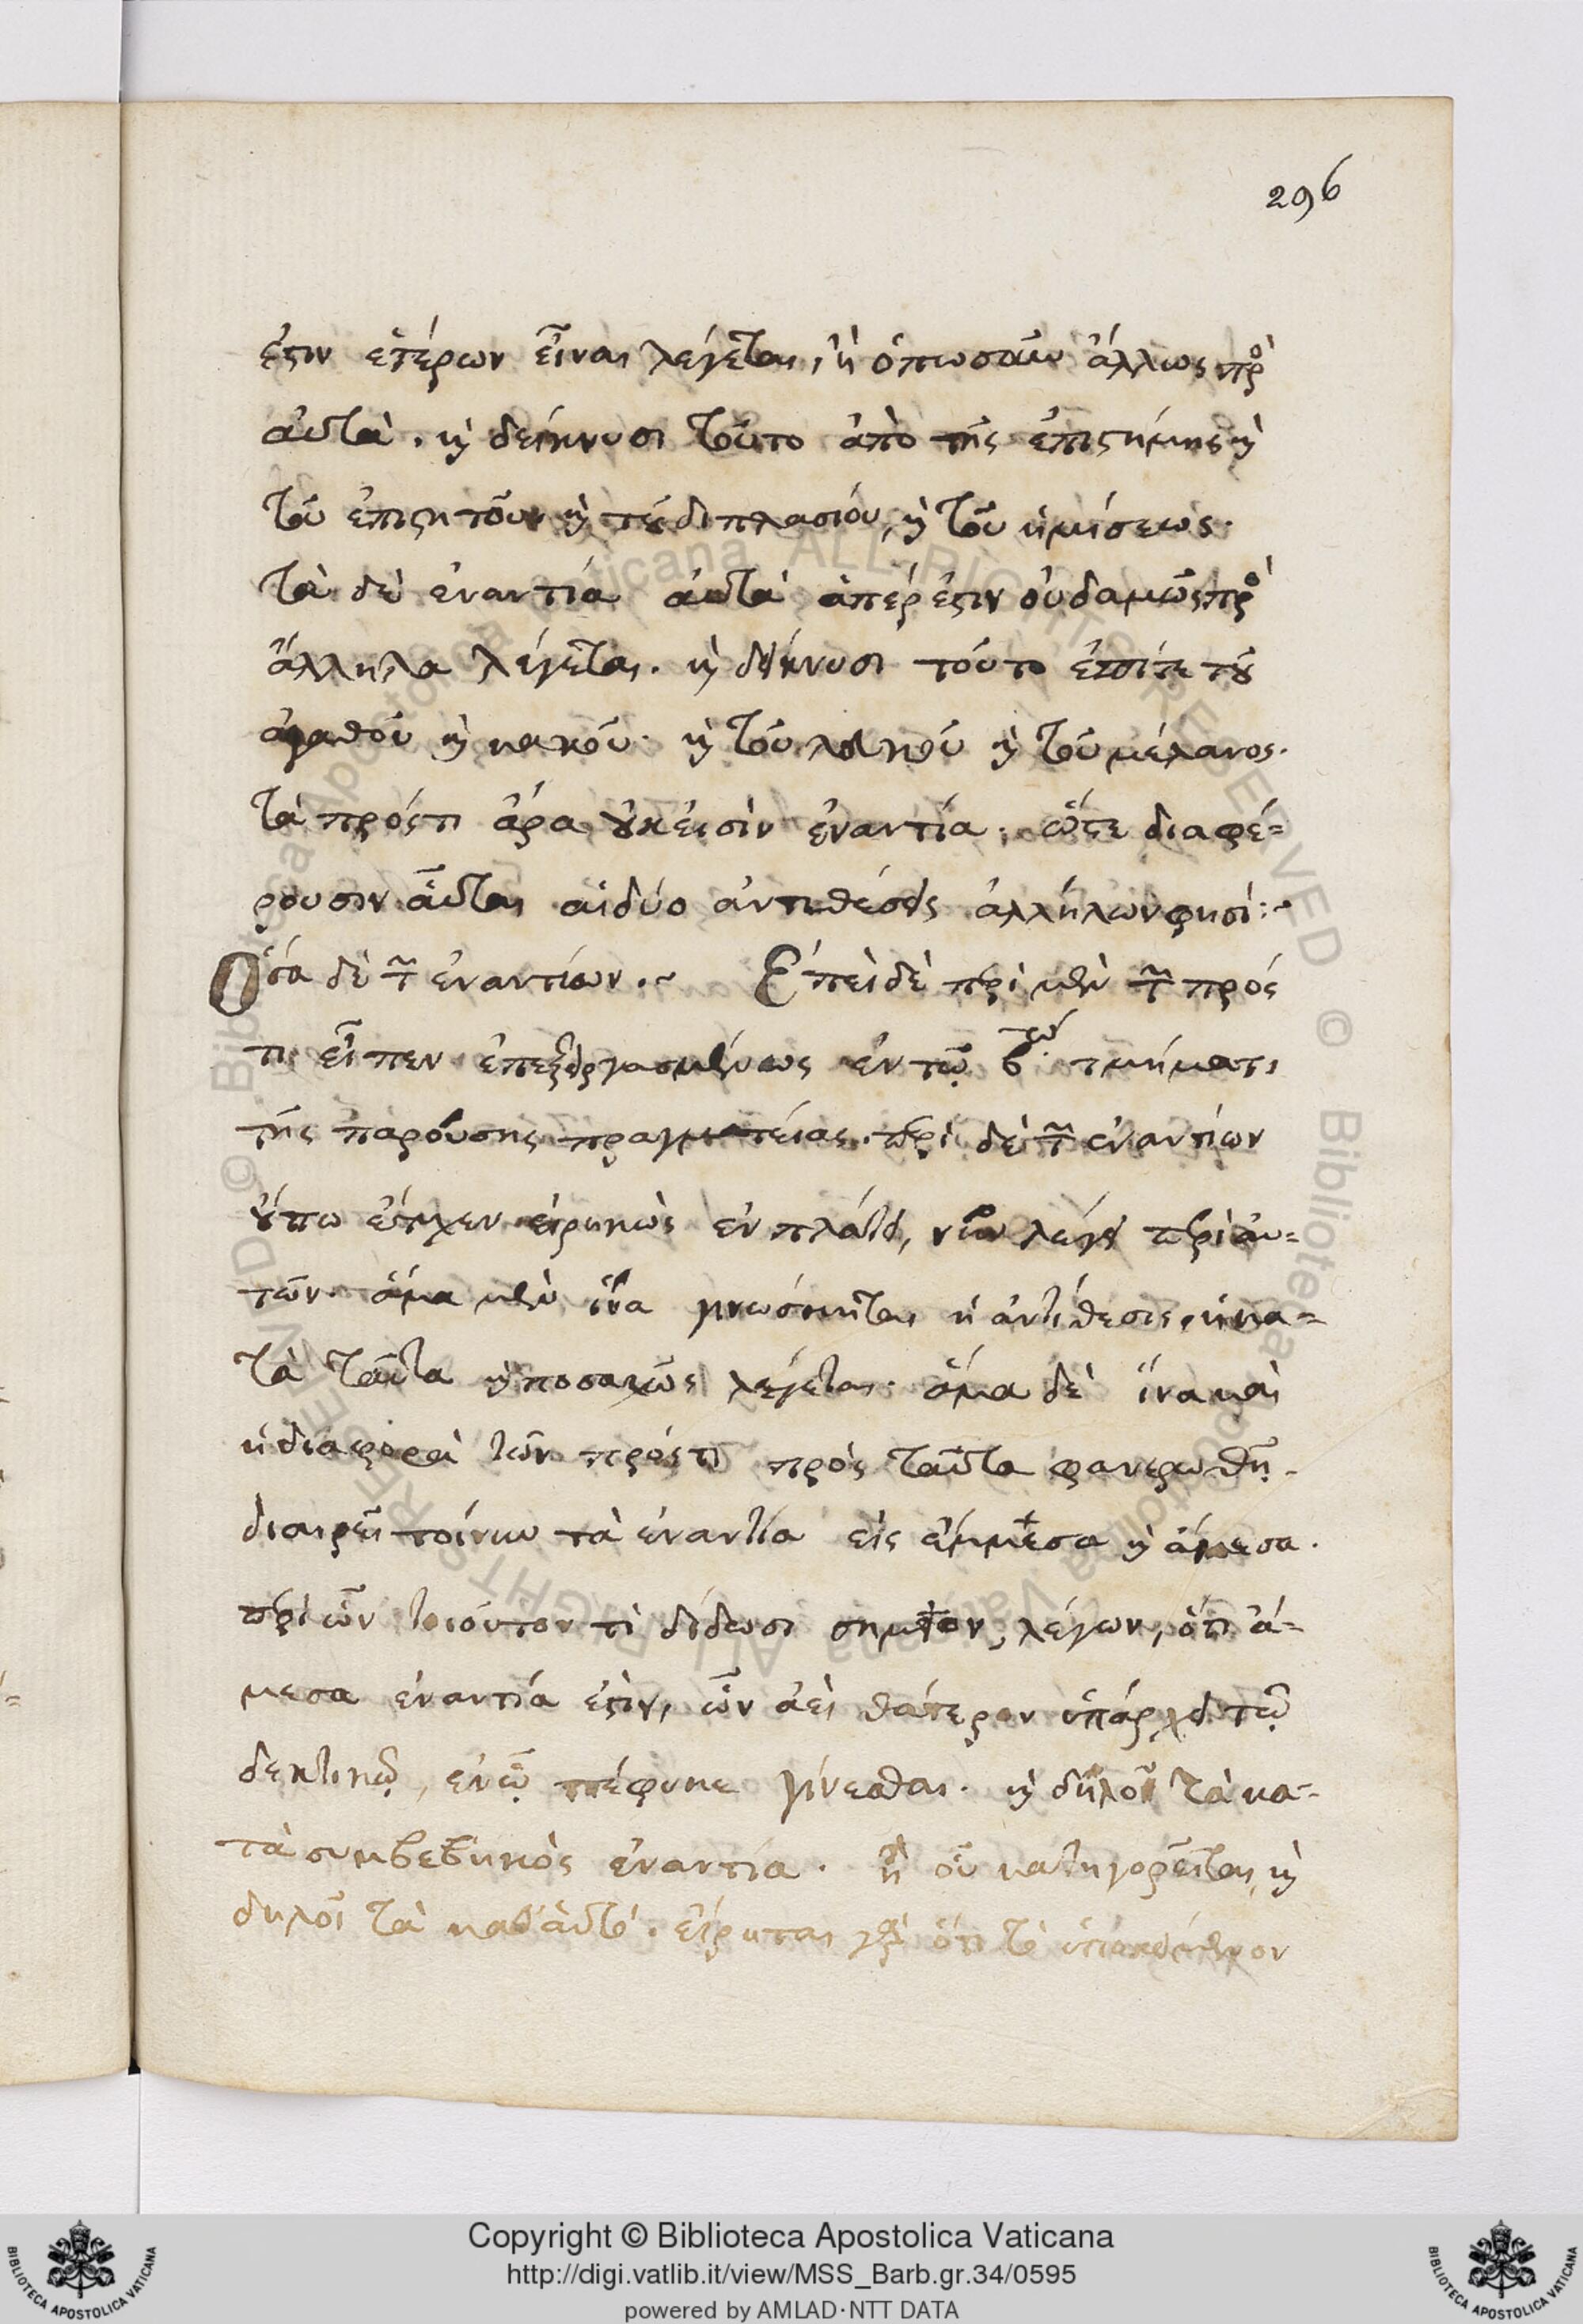 296
ἐστιν ἑτέρων εἶναι λέγεται, ἢ ὁπωσοῦν ἄλλως πρὸς
αὐτά. καὶ δείκνυσι τοῦτο ἀπὸ τῆς ἐπιστήμης καὶ
τοῦ ἐπιστητοῦ καὶ τοῦ διπλασίου, καὶ τοῦ ἡμίσεως.
τὰ δὲ ἐναντία αὐτὰ ἅπερ ἐστιν οὐδαμῶς πρὸς
ἄλληλα λέγεται. καὶ δείκνυσι τοῦτο ἐπί τε τοῦ
ἀγαθοῦ καὶ κακοῦ. καὶ τοῦ λευκοῦ καὶ τοῦ μέλανος.
τὰ πρός τι ἄρα οὐκ εἰσὶν ἐναντία. ὥστε διαφέ-
ρουσιν αὗται αἱ δύο ἀντιθέσεις ἀλλήλων φησί:~
Ὅσα δὲ τῶν ἐναντίων.~ Ἐπεὶ δὲ περὶ μὲν τῶν πρός
τι εἶπεν ἐπεξειργασμένως ἐν τῷ βῳ τμήματι
τῆς παρούσης πραγματείας. περὶ δὲ τῶν ἐναντίων
οὔπω ἔτυχεν εἰρηκὼς ἐν πλάτει, νῦν λέγει περὶ αὐ-
τῶν. ἅμα μὲν ἵνα γνωσθῆται ἡ ἀντίθεσις, ἡ κα-
τὰ ταῦτα καὶ ποσαχῶς λέγεται. ἅμα δὲ ἵνα καὶ
ἡ διαφορὰ τῶν πρός τι πρὸς ταῦτα φανερωθῇ.
διαιρεῖ τοίνυν τὰ ἐναντία εἰς ἔμμεσα καὶ ἄμεσα.
περὶ ὧν τοιοῦτον τὶ δίδωσι σημεῖον, λέγων, ὅτι ἄ-
μεσα ἐναντία ἐστιν, ὧν ἀεὶ θάτερον ὑπάρχει τῷ
δεκτικῷ, ἐν ᾧ πέφυκε γίνεσθαι. καὶ δηλοῖ τὰ κα-
τὰ συμβεβηκὸς ἐναντία. ἢ οὗ κατηγορεῖται, καὶ
δηλοῖ τὰ καθ' αὑτό. εἴρηται γὰρ ὅτι τὸ ὑποκείμενον
Copyright © Biblioteca Apostolica Vaticana
http://digi.vatlib.it/view/MSS_Barb.gr.34/0595
powered by AMLAD·NTT DATA